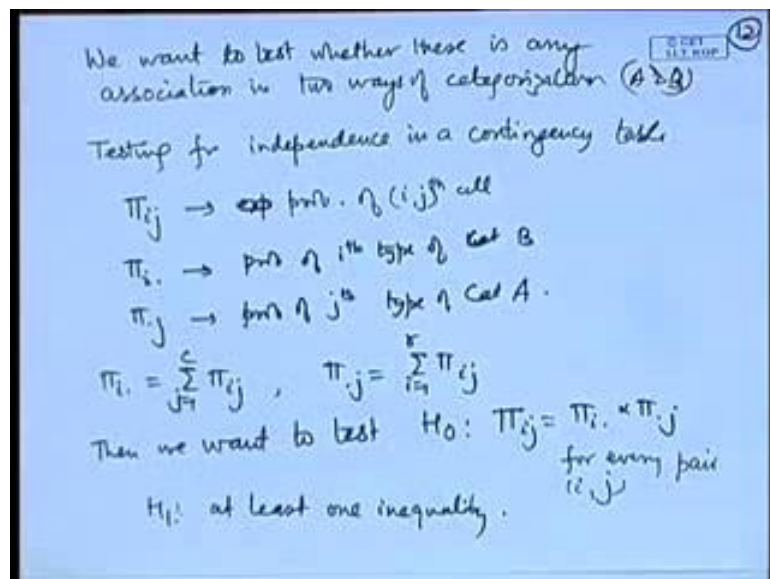 12
© CET
I.I.T. KGP
We want to test whether there is any
association in two ways of categorization (A & B)
Testing for independence in a contingency table
πij → prob. of (i,j)th cell
πi. → prob of ith type of Cat B
π.j → prob of jth type of Cat A.
πi. = Σ_{j=1}^{c} πij , π.j = Σ_{i=1}^{r} πij
Then we want to test H0: πij = πi. × π.j
for every pair
(i,j)
H1: at least one inequality.